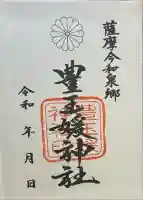 薩摩今和泉郷
豊玉媛神社
令和 年 月 日